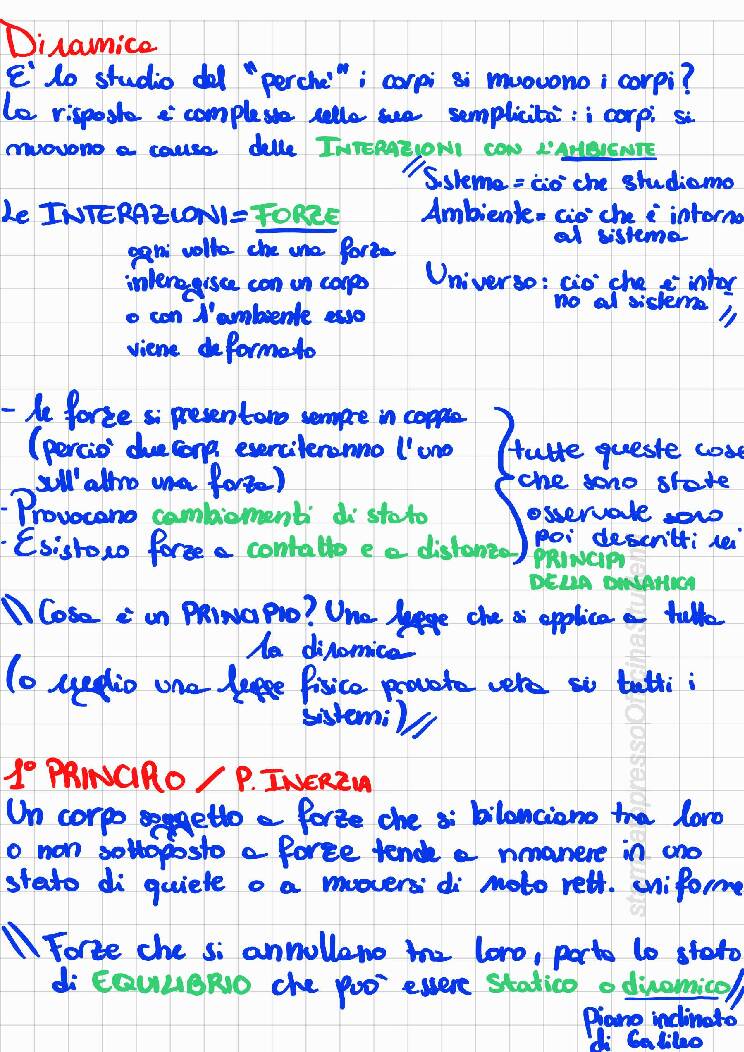 Dinamica
E' lo studio del "perché" i corpi si muovono i corpi?
La risposta è complessa nella sua semplicità: i corpi si
muovono a causa delle INTERAZIONI CON L'AMBIENTE
// Sistema = ciò che studiamo
Ambiente = ciò che è intorno
al sistema
Universo: ciò che è intor
no al sistema //
Le INTERAZIONI = FORZE
ogni volta che una forza
interagisce con un corpo
o con l'ambiente esso
viene deformato
- le forze si presentano sempre in coppia
(perciò due corpi eserciteranno l'uno
sull'altro una forza)
- Provocano cambiamenti di stato
- Esistono forze a contatto e a distanza
tutte queste cose
che sono state
osservate sono
poi descritti nei
PRINCIPI
DELLA DINAMICA
\\ Cosa è un PRINCIPIO? Una legge che si applica a tutta
la dinamica
(o meglio una legge fisica provata vera su tutti i
sistemi) //
1° PRINCIPIO / P. INERZIA
Un corpo soggetto a forze che si bilanciano tra loro
o non sottoposto a forze tende a rimanere in uno
stato di quiete o a muoversi di moto rett. uniforme
\\ Forze che si annullano tra loro, porta lo stato
di EQUILIBRIO che può essere statico o dinamico //
Piano inclinato
di Galileo